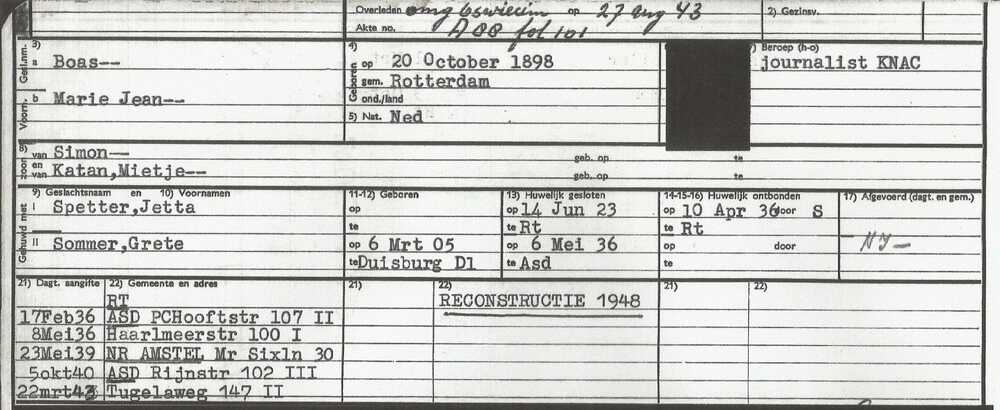 Overleden omg Oswiecim op 27 aug 43 2) Gezinsv.
Akte no. A88 fol 101
3) a Gesl.nm. Boas--
4) Geboren op 20 October 1898
7) Beroep (h-o)
journalist KNAC
gem. Rotterdam
b Voorn. Marie Jean-- ond./land
5) Nat. Ned
8) zoon van Simon-- geb. op te
en van Katan,Mietje-- geb. op te
9) Geslachtsnaam en 10) Voornamen 11-12) Geboren 13) Huwelijk gesloten 14-15-16) Huwelijk ontbonden 17) Afgevoerd (dagt. en gem.)
Gehuwd met I Spetter,Jetta op op 14 Jun 23 op 10 Apr 36 door S
te te Rt te Rt
II Sommer,Grete op 6 Mrt 05 op 6 Mei 36 op door
te Duisburg Dl te Asd te
21) Dagt. aangifte 22) Gemeente en adres 21) 22) 21) 22)
RT RECONSTRUCTIE 1948
17Feb36 ASD PCHooftstr 107 II
8Mei36 Haarlmeerstr 100 I
23Mei39 NR AMSTEL Mr Sixln 30
5okt40 ASD Rijnstr 102 III
22mrt43 Tugelaweg 147 II